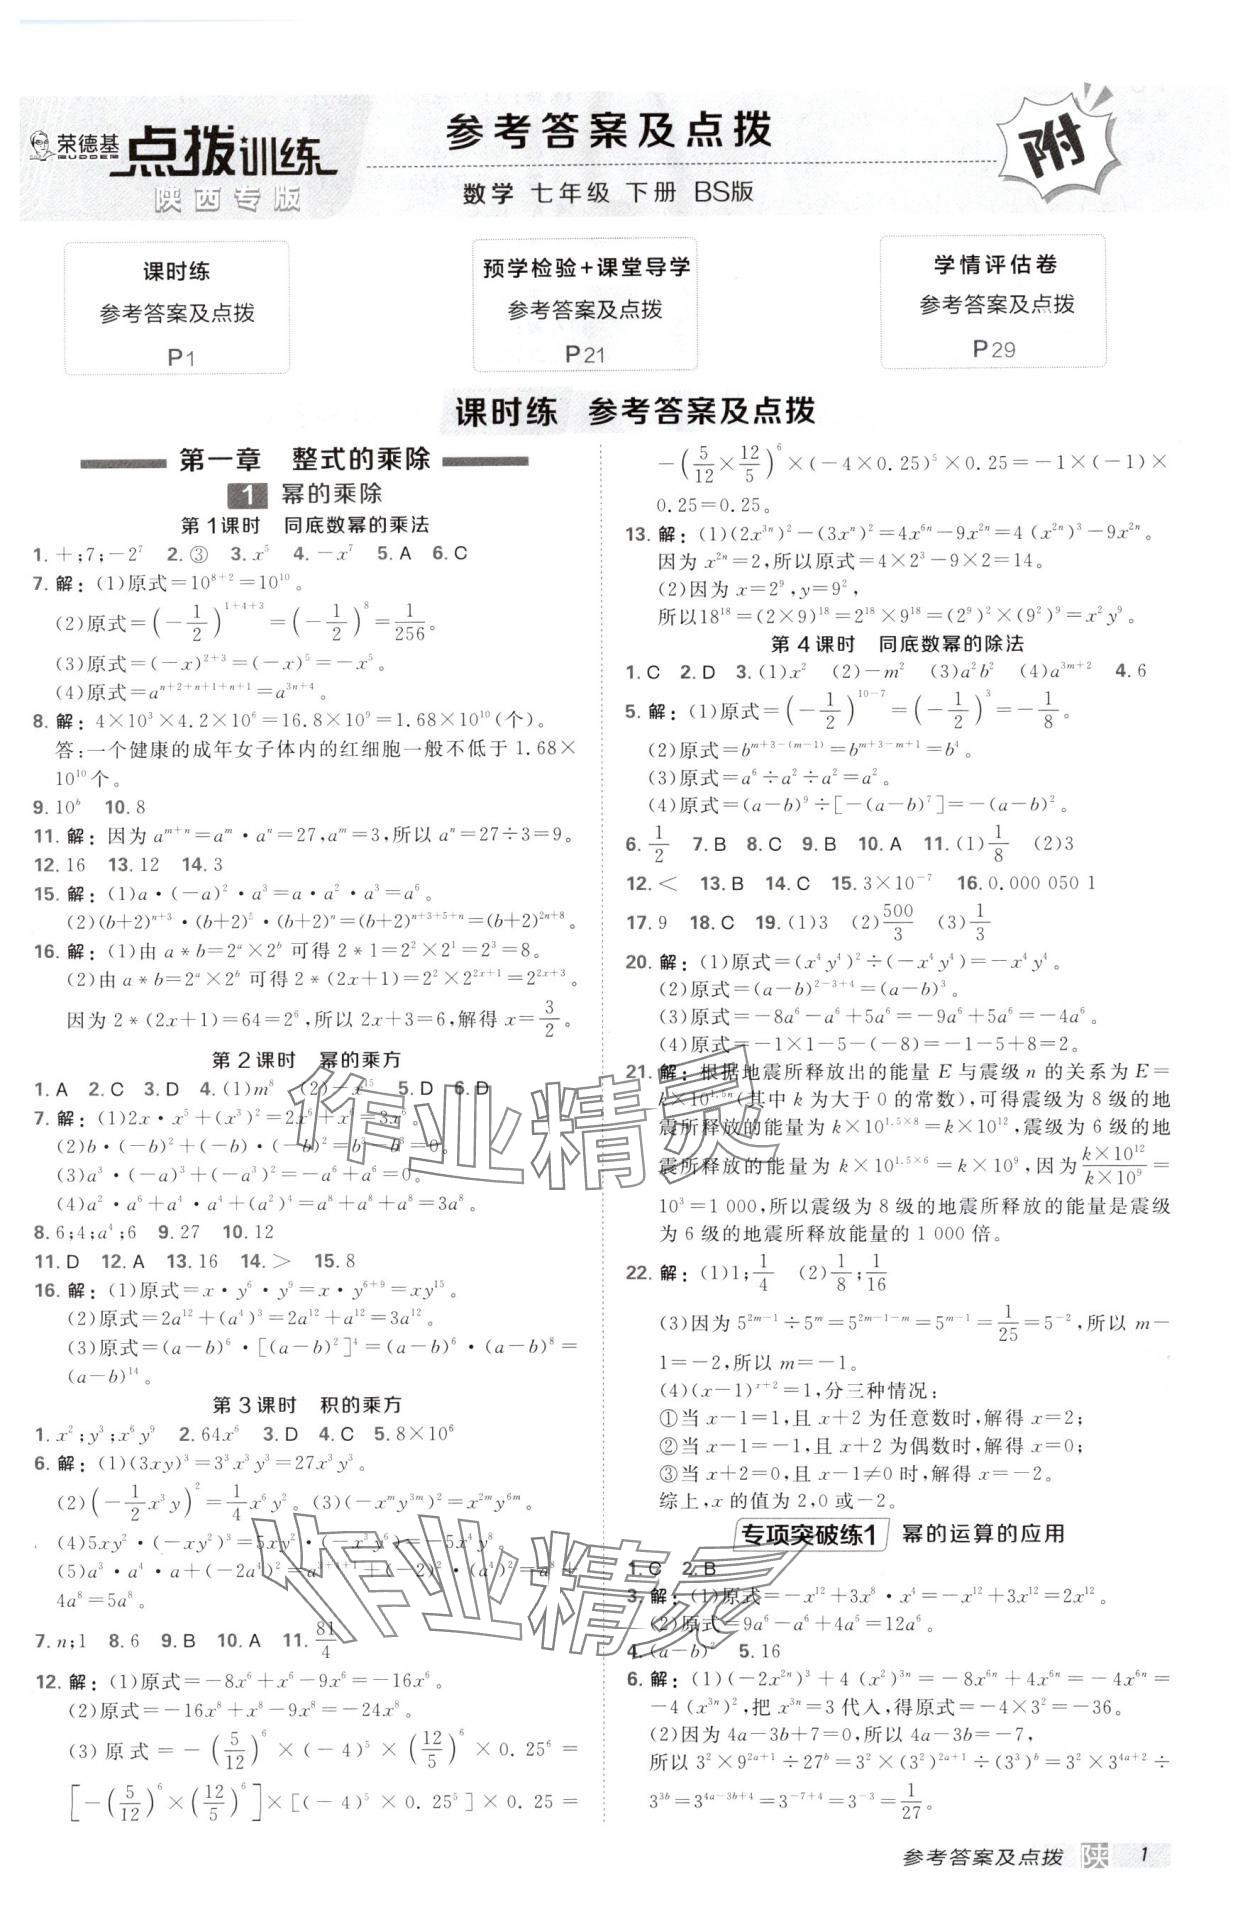 荣德基
点拨训练
陕西专版
参考答案及点拨
数学 七年级 下册 BS版
附
课时练
参考答案及点拨
P1
预学检验+课堂导学
参考答案及点拨
P21
学情评估卷
参考答案及点拨
P29
课时练 参考答案及点拨
第一章 整式的乘除
1 幂的乘除
第1课时 同底数幂的乘法
1. +;7;-2⁷ 2. ③ 3. x⁵ 4. -x⁷ 5. A 6. C
7. 解:(1)原式=10⁸⁺²=10¹⁰。
(2)原式=(-1/2)¹⁺⁴⁺³=(-1/2)⁸=1/256。
(3)原式=(-x)²⁺³=(-x)⁵=-x⁵。
(4)原式=a^(n+2+n+1+n+1)=a^(3n+4)。
8. 解:4×10³×4.2×10⁶=16.8×10⁹=1.68×10¹⁰(个)。
答:一个健康的成年女子体内的红细胞一般不低于1.68×
10¹⁰个。
9. 10^b 10. 8
11. 解:因为a^(m+n)=a^m·a^n=27,a^m=3,所以a^n=27÷3=9。
12. 16 13. 12 14. 3
15. 解:(1)a·(-a)²·a³=a·a²·a³=a⁶。
(2)(b+2)^(n+3)·(b+2)⁵·(b+2)^n=(b+2)^(n+3+5+n)=(b+2)^(2n+8)。
16. 解:(1)由a*b=2^a×2^b可得2*1=2²×2¹=2³=8。
(2)由a*b=2^a×2^b可得2*(2x+1)=2²×2^(2x+1)=2^(2x+3)。
因为2*(2x+1)=64=2⁶,所以2x+3=6,解得x=3/2。
第2课时 幂的乘方
1. A 2. C 3. D 4. (1)m⁸ (2)-x¹⁵ 5. D 6. D
7. 解:(1)2x·x⁵+(x³)²=2x⁶+x⁶=3x⁶。
(2)b·(-b)²+(-b)·(-b)²=b³-b³=0。
(3)a³·(-a)³+(-a³)²=-a⁶+a⁶=0。
(4)a²·a⁶+a⁴·a⁴+(a²)⁴=a⁸+a⁸+a⁸=3a⁸。
8. 6;4;a⁴;6 9. 27 10. 12
11. D 12. A 13. 16 14. > 15. 8
16. 解:(1)原式=x·y⁶·y⁹=x·y⁶⁺⁹=xy¹⁵。
(2)原式=2a¹²+(a⁴)³=2a¹²+a¹²=3a¹²。
(3)原式=(a-b)⁶·[(a-b)²]⁴=(a-b)⁶·(a-b)⁸=
(a-b)¹⁴。
第3课时 积的乘方
1. x²;y³;x⁶y⁹ 2. 64x⁶ 3. D 4. C 5. 8×10⁶
6. 解:(1)(3xy)³=3³x³y³=27x³y³。
(2)(-1/2x³y)²=1/4x⁶y²。(3)(-x^my^(3m))²=x^(2m)y^(6m)。
(4)5xy²·(-xy²)·(-x³y²)=5x⁵y⁶。
(5)a³·a⁴·a+(-2a⁴)²=a³⁺⁴⁺¹+(-2)²·(a⁴)²=a⁸+
4a⁸=5a⁸。
7. n;1 8. 6 9. B 10. A 11. 81/4
12. 解:(1)原式=-8x⁶+x⁶-9x⁶=-16x⁶。
(2)原式=-16x⁸+x⁸-9x⁸=-24x⁸。
(3)原式=-(5/12)⁶×(-4)⁵×(12/5)⁶×0.25⁶=
[-(5/12)⁶×(12/5)⁶]×[(-4)⁵×0.25⁵]×0.25=
-(5/12×12/5)⁶×(-4×0.25)⁵×0.25=-1×(-1)×
0.25=0.25。
13. 解:(1)(2x^(3n))²-(3x^n)²=4x^(6n)-9x^(2n)=4(x^(2n))³-9x^(2n)。
因为x^(2n)=2,所以原式=4×2³-9×2=14。
(2)因为x=2⁹,y=9²,
所以18¹⁸=(2×9)¹⁸=2¹⁸×9¹⁸=(2⁹)²×(9²)⁹=x²y⁹。
第4课时 同底数幂的除法
1. C 2. D 3. (1)x² (2)-m² (3)a²b² (4)a^(3m+2) 4. 6
5. 解:(1)原式=(-1/2)¹⁰⁻⁷=(-1/2)³=-1/8。
(2)原式=b^(m+3-(m-1))=b^(m+3-m+1)=b⁴。
(3)原式=a⁶÷a²÷a²=a²。
(4)原式=(a-b)⁹÷[-(a-b)⁷]=-(a-b)²。
6. 1/2 7. B 8. C 9. B 10. A 11. (1)1/8 (2)3
12. < 13. B 14. C 15. 3×10⁻⁷ 16. 0.000 050 1
17. 9 18. C 19. (1)3 (2)500/3 (3)1/3
20. 解:(1)原式=(x⁴y⁴)²÷(-x⁴y⁴)=-x⁴y⁴。
(2)原式=(a-b)²⁻³⁺⁴=(a-b)³。
(3)原式=-8a⁶-a⁶+5a⁶=-9a⁶+5a⁶=-4a⁶。
(4)原式=-1×1-5-(-8)=-1-5+8=2。
21. 解:根据地震所释放出的能量E与震级n的关系为E=
k×10^(1.5n)(其中k为大于0的常数),可得震级为8级的地
震所释放的能量为k×10^(1.5×8)=k×10¹²,震级为6级的地
震所释放的能量为k×10^(1.5×6)=k×10⁹,因为(k×10¹²)/(k×10⁹)=
10³=1 000,所以震级为8级的地震所释放的能量是震级
为6级的地震所释放能量的1 000倍。
22. 解:(1)1;1/4 (2)1/8;1/16
(3)因为5^(2m-1)÷5^m=5^(2m-1-m)=5^(m-1)=1/25=5⁻²,所以m-
1=-2,所以m=-1。
(4)(x-1)^(x+2)=1,分三种情况:
①当x-1=1,且x+2为任意数时,解得x=2;
②当x-1=-1,且x+2为偶数时,解得x=0;
③当x+2=0,且x-1≠0时,解得x=-2。
综上,x的值为2,0或-2。
专项突破练1 幂的运算的应用
1. C 2. B
3. 解:(1)原式=-x¹²+3x⁸·x⁴=-x¹²+3x¹²=2x¹²。
(2)原式=9a⁶-a⁶+4a⁶=12a⁶。
4. (a-b)² 5. 16
6. 解:(1)(-2x^(2n))³+4(x²)^(3n)=-8x^(6n)+4x^(6n)=-4x^(6n)=
-4(x^(3n))²,把x^(3n)=3代入,得原式=-4×3²=-36。
(2)因为4a-3b+7=0,所以4a-3b=-7,
所以3²×9^(2a+1)÷27^b=3²×(3²)^(2a+1)÷(3³)^b=3²×3^(4a+2)÷
3^(3b)=3^(4a-3b+4)=3⁻⁷⁺⁴=3⁻³=1/27。
作业精灵
作业精灵
参考答案及点拨 陕 1